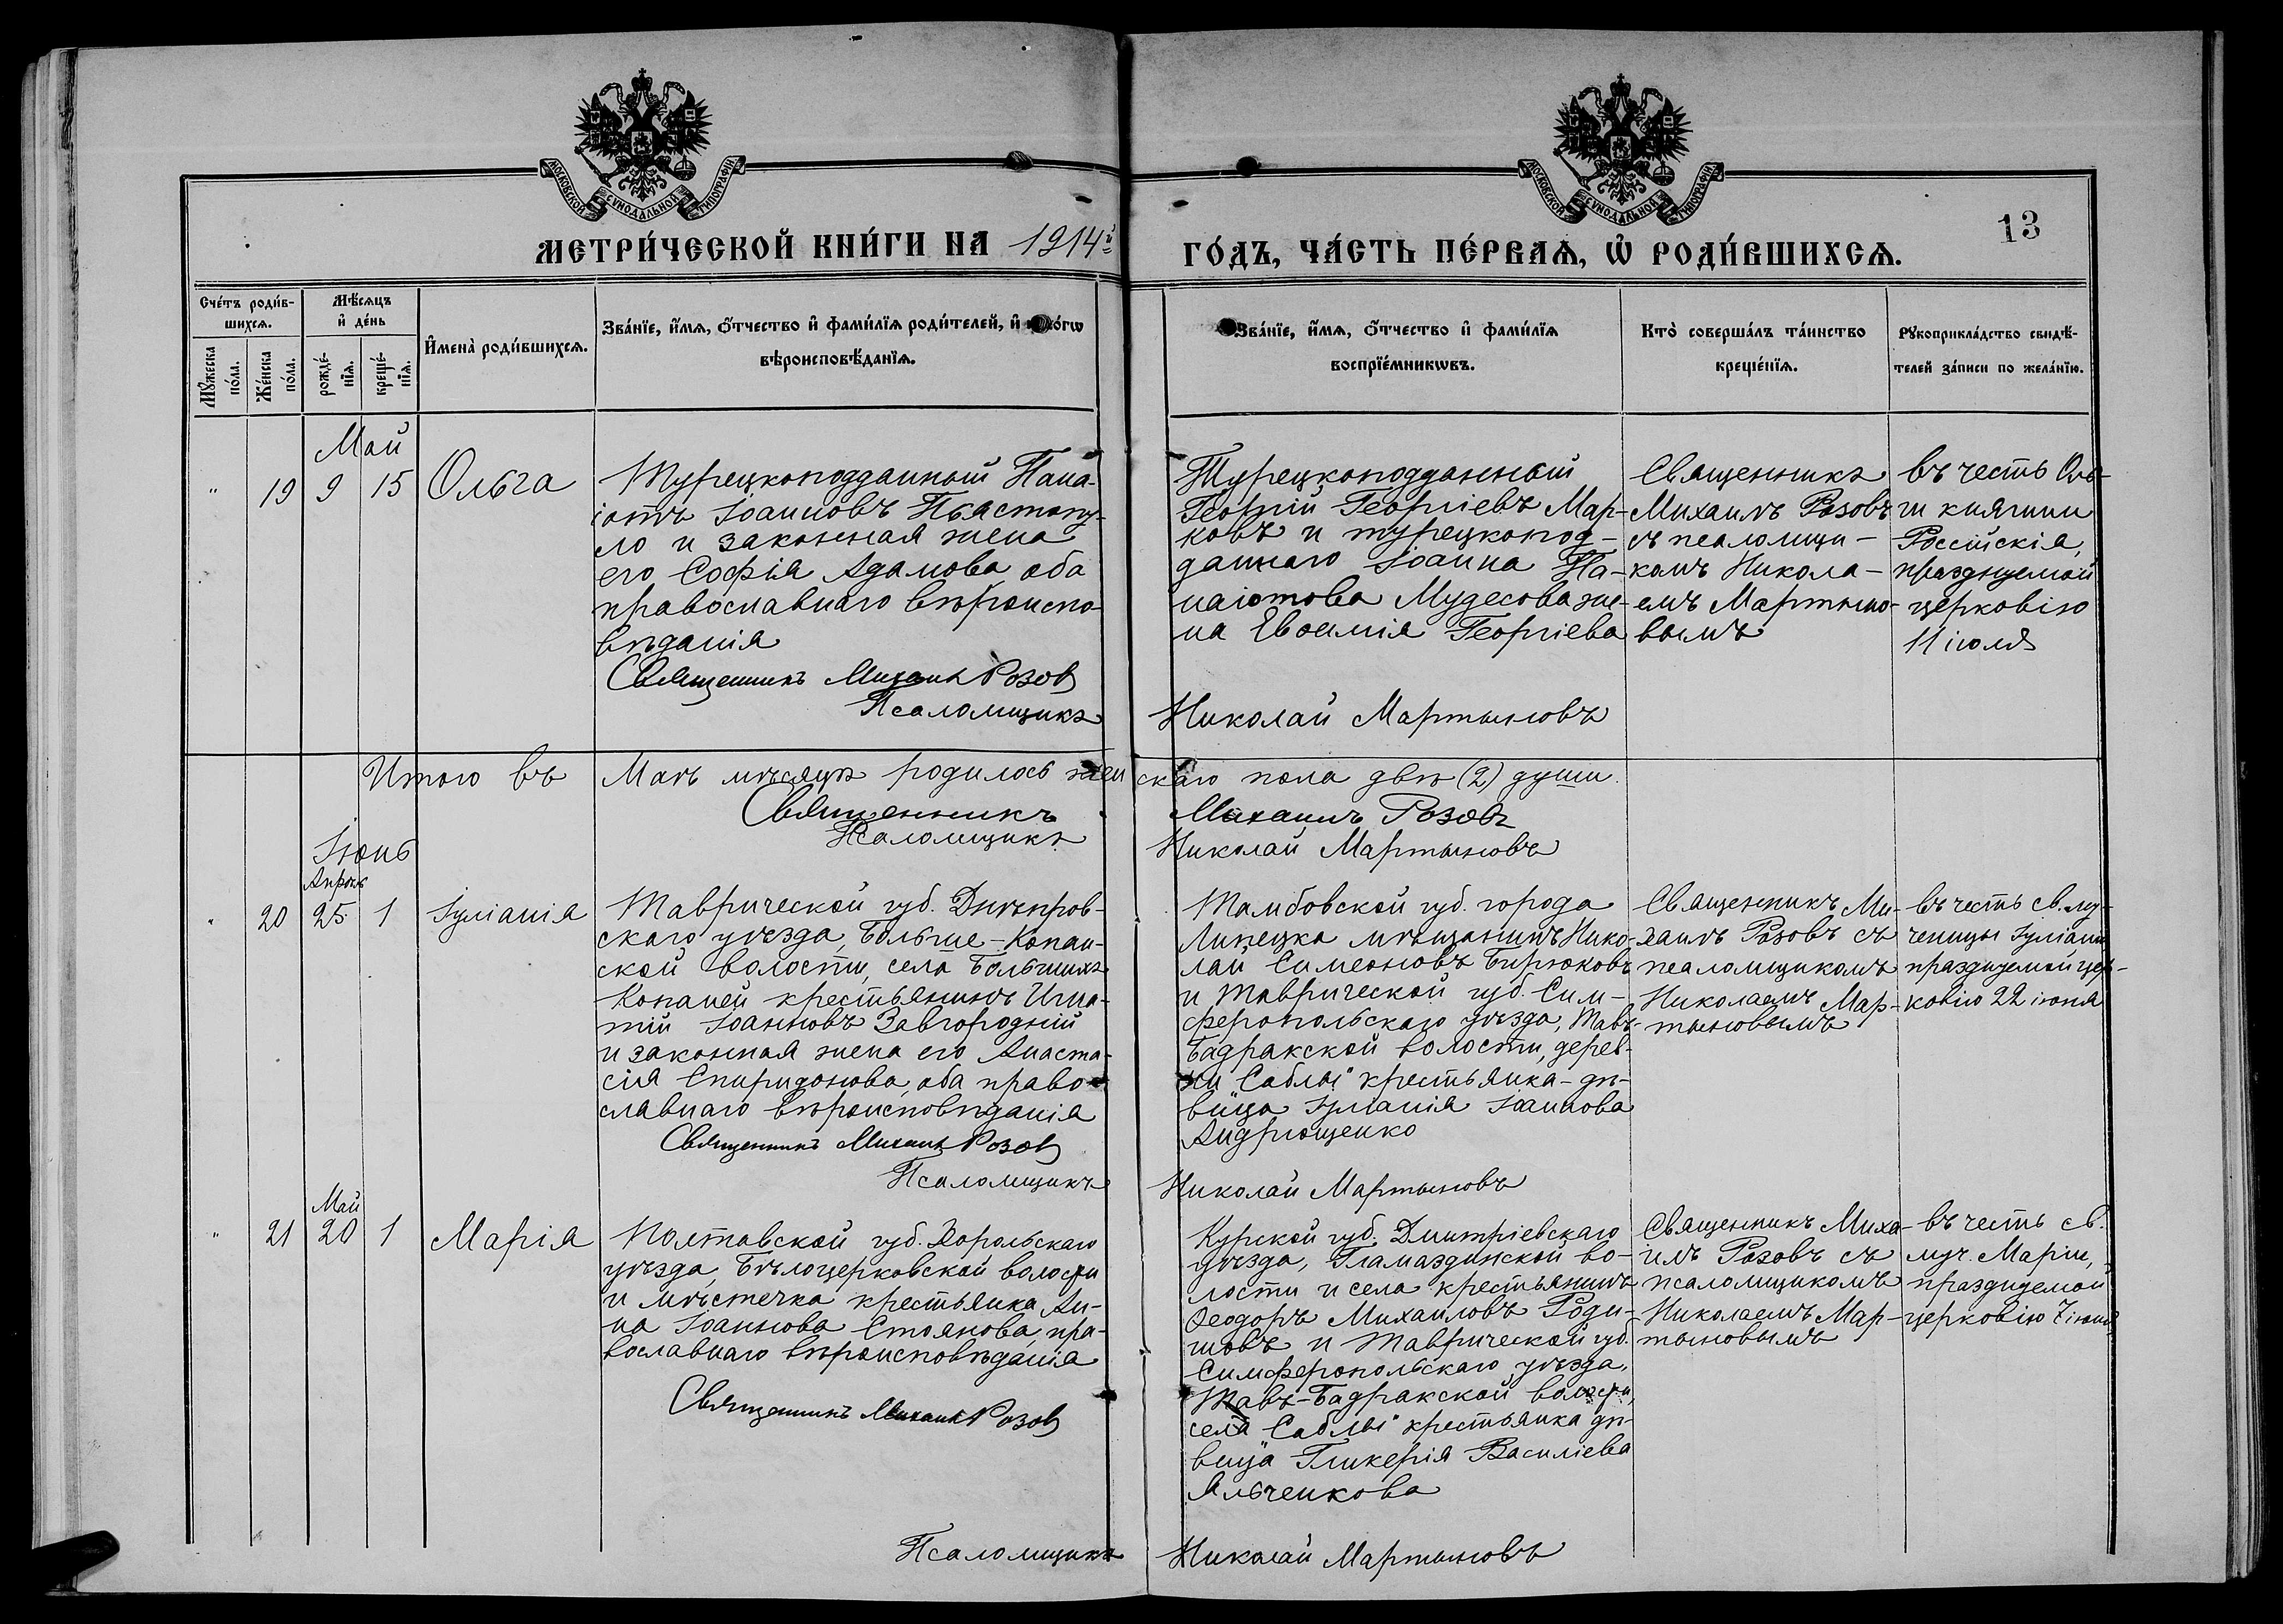 МОСКОВСКОЙ СѴНОДАЛЬНОЙ ТИПОГРАФІИ
МОСКОВСКОЙ СѴНОДАЛЬНОЙ ТИПОГРАФІИ
13
МЕТРИ́ЧЕСКОЙ КНИ́ГИ НА 1914й
ГО́ДЪ, ЧА́СТЬ ПЕ́РВАѦ, Ѡ҆ РОДИ́ВШИХСѦ.
Сче́тъ роди́в-
шихсѧ.
Мꙋ́жеска
по́ла.
Же́нска
по́ла.
Мѣ́сѧцъ
и҆ де́нь
рожде́-
нїѧ.
креще́-
нїѧ.
И҆мена̀ роди́вшихсѧ.
Зва́нїе, и҆́мѧ, ѻ҆́тчество и҆ фами́лїѧ роди́телей, и҆
вѣроисповѣ́данїѧ.
Зва́нїе, и҆́мѧ, ѻ҆́тчество и҆ фами́лїѧ
воспрїе́мникѡвъ.
Кто̀ соверша́лъ та́инство
креще́нїѧ.
Рꙋкоприкла́дство свидѣ́-
телей за́писи по жела́нїю.
Май
" 19 9 15 Ольга
Турецкоподданный Пана-
іотъ Іоанновъ Пьястопу-
ло и законная жена
его Софія Адамова, оба
православнаго вѣроиспо-
вѣданія
Священникъ Михаилъ Розовъ
Псаломщикъ
Турецкоподданный
Георгій Георгіевъ Мар-
ковъ и турецкопод-
даннаго Іоанна Па-
наіотова Мудесова же-
на Евѳимія Георгіева
Николай Мартыновъ
Священникъ
Михаилъ Розовъ
съ псаломщи-
комъ Никола-
емъ Мартыно-
вымъ
въ честь Оль-
ги княгини
Россійскія,
празднуемой
церковію
11 іюля
Итого въ Маѣ мѣсяцѣ родилось женскаго пола двѣ (2) души.
Священникъ Михаилъ Розовъ
Псаломщикъ Николай Мартыновъ
Іюнь
Апрѣль
" 20 25 1 Іуліанія
Таврической губ. Днѣпров-
скаго уѣзда, Больше-Копан-
ской волости, села Большихъ
Копаней крестьянинъ Игна-
тій Іоанновъ Завгородній
и законная жена его Анаста-
сія Спиридонова, оба право-
славнаго вѣроисповѣданія
Священникъ Михаилъ Розовъ
Псаломщикъ
Тамбовской губ. города
Липецка мѣщанинъ Нико-
лай Симеоновъ Бирюковъ
и Таврической губ. Сим-
феропольскаго уѣзда, Тавъ-
Бадракской волости, дерев-
ни „Саблы“ крестьянка-дѣ-
вица Іуліанія Іоаннова
Андрющенко
Николай Мартыновъ
Священникъ Ми-
хаилъ Розовъ съ
псаломщикомъ
Николаемъ Мар-
тыновымъ
въ честь св. му-
ченицы Іуліаніи
празднуемой цер-
ковію 22 іюня
Май
" 21 20 1 Марія
Полтавской губ. Хорольскаго
уѣзда, Бѣлоцерковской волости
и мѣстечка крестьянка Ан-
на Іоаннова Стоянова, пра-
вославнаго вѣроисповѣданія
Священникъ Михаилъ Розовъ
Псаломщикъ
Курской губ. Дмитріевскаго
уѣзда, Гламаздинской во-
лости и села крестьянинъ
Ѳеодоръ Михаиловъ Роди-
новъ и Таврической губ.
Симферопольскаго уѣзда,
Тавъ-Бадракской волости,
села „Саблы“ крестьянка дѣ-
вица Гликерія Василіева
Яльченкова
Николай Мартыновъ
Священникъ Миха-
илъ Розовъ съ
псаломщикомъ
Николаемъ Мар-
тыновымъ
въ честь св.
муч. Маріи,
празднуемой
церковію 7 іюня